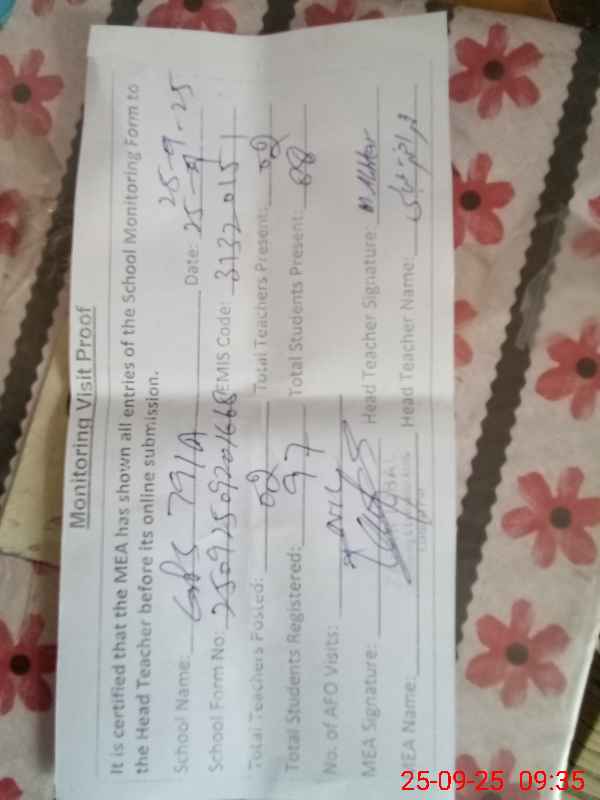 Monitoring Visit Proof
It is certified that the MEA has shown all entries of the School Monitoring Form to
the Head Teacher before its online submission.
25-9-25
School Name: GBPS 791A Date: 25-9
School Form No: EMIS Code: 31320151
Total Teachers Posted: 02 Total Teachers Present: 02
Total Students Registered: 97 Total Students Present:
No. of AFO Visits: NIL
MEA Signature: Head Teacher Signature:
MEA Name: Head Teacher Name:
25-09-25 09:35